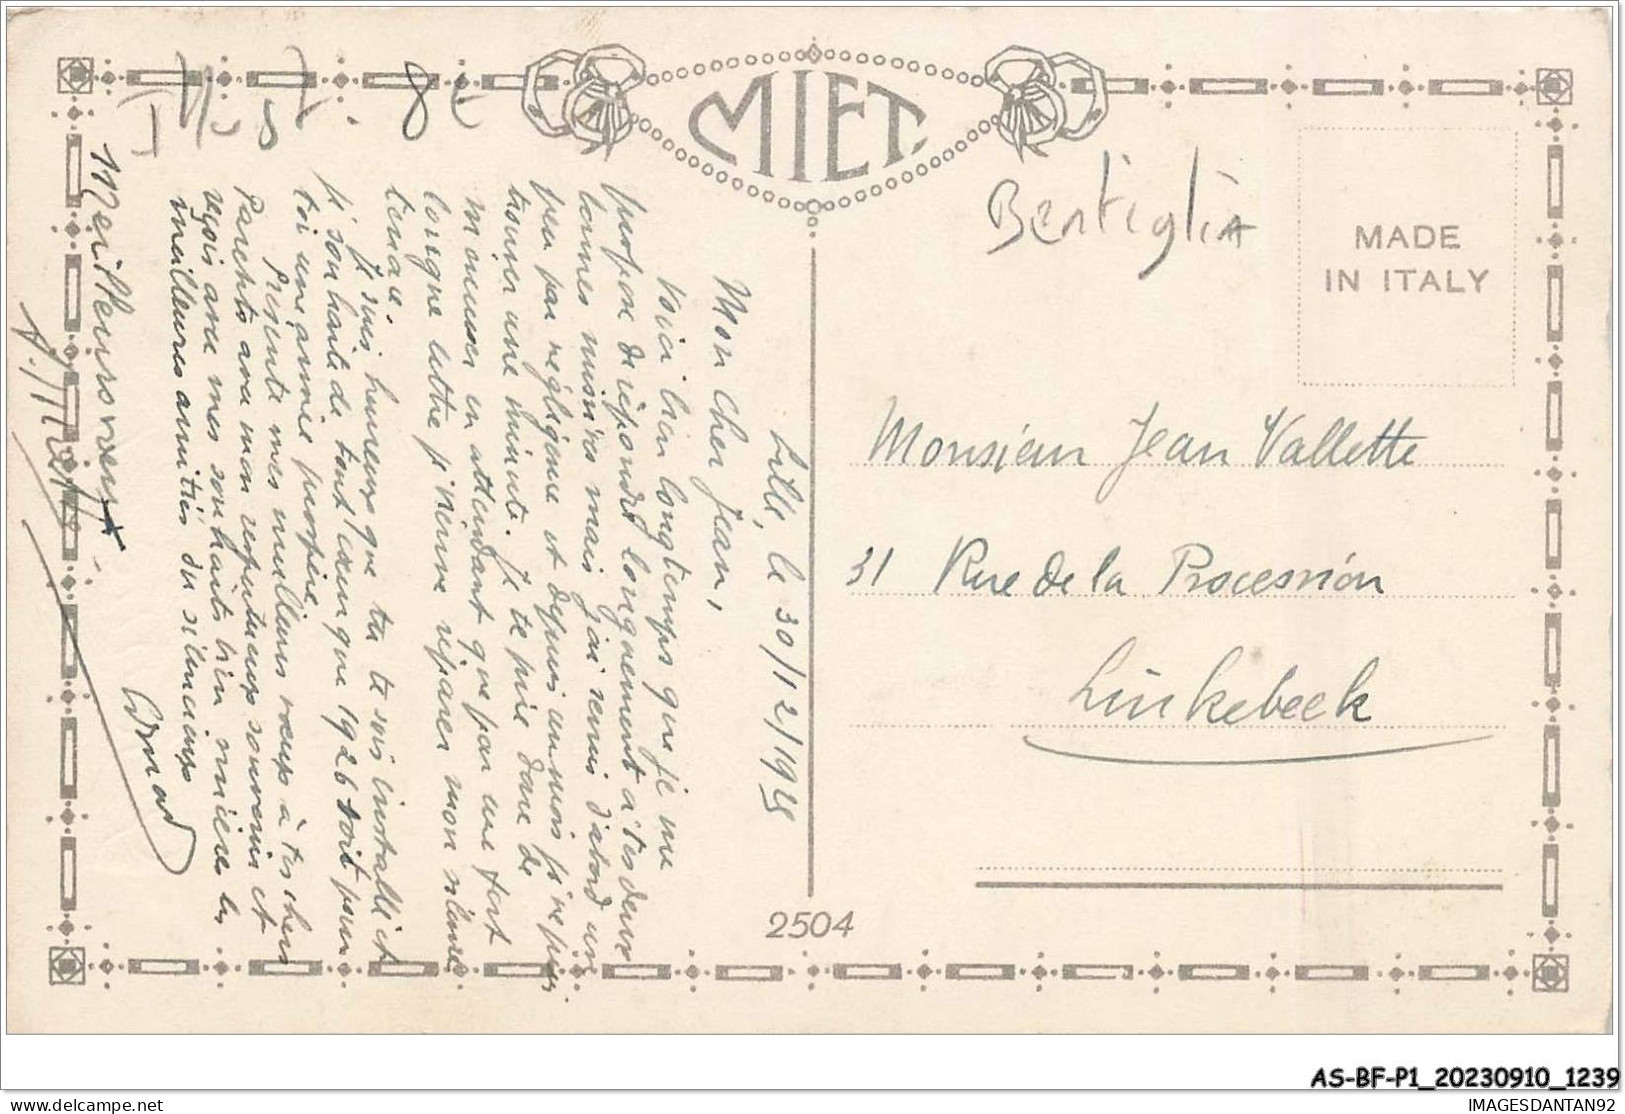 MIET.
Illust. 8€
Bertiglia
MADE
IN ITALY
Monsieur Jean Vallette
31 Rue de la Procession
Linkebeek
2504
Lille, le 30/12/1925
Mon cher Jean,
Voici bien longtemps que je me
propose de répondre longuement à tes deux
bonnes missives mais j'ai remis d'abord un
peu par négligence et depuis un mois je ne puis
trouver une minute. Je te prie donc de
m'excuser en attendant que par une fort
longue lettre je vienne réparer mon silence
tenace.
Je suis heureux que tu te sois installé et
je souhaite de tout cœur que 1926 soit pour
toi une année prospère.
Présente mes meilleurs vœux à tes chers
Parents avec mon respectueux souvenir et
reçois avec mes souhaits bien sincères les
meilleures amitiés du silencieux
Meilleurs vœux